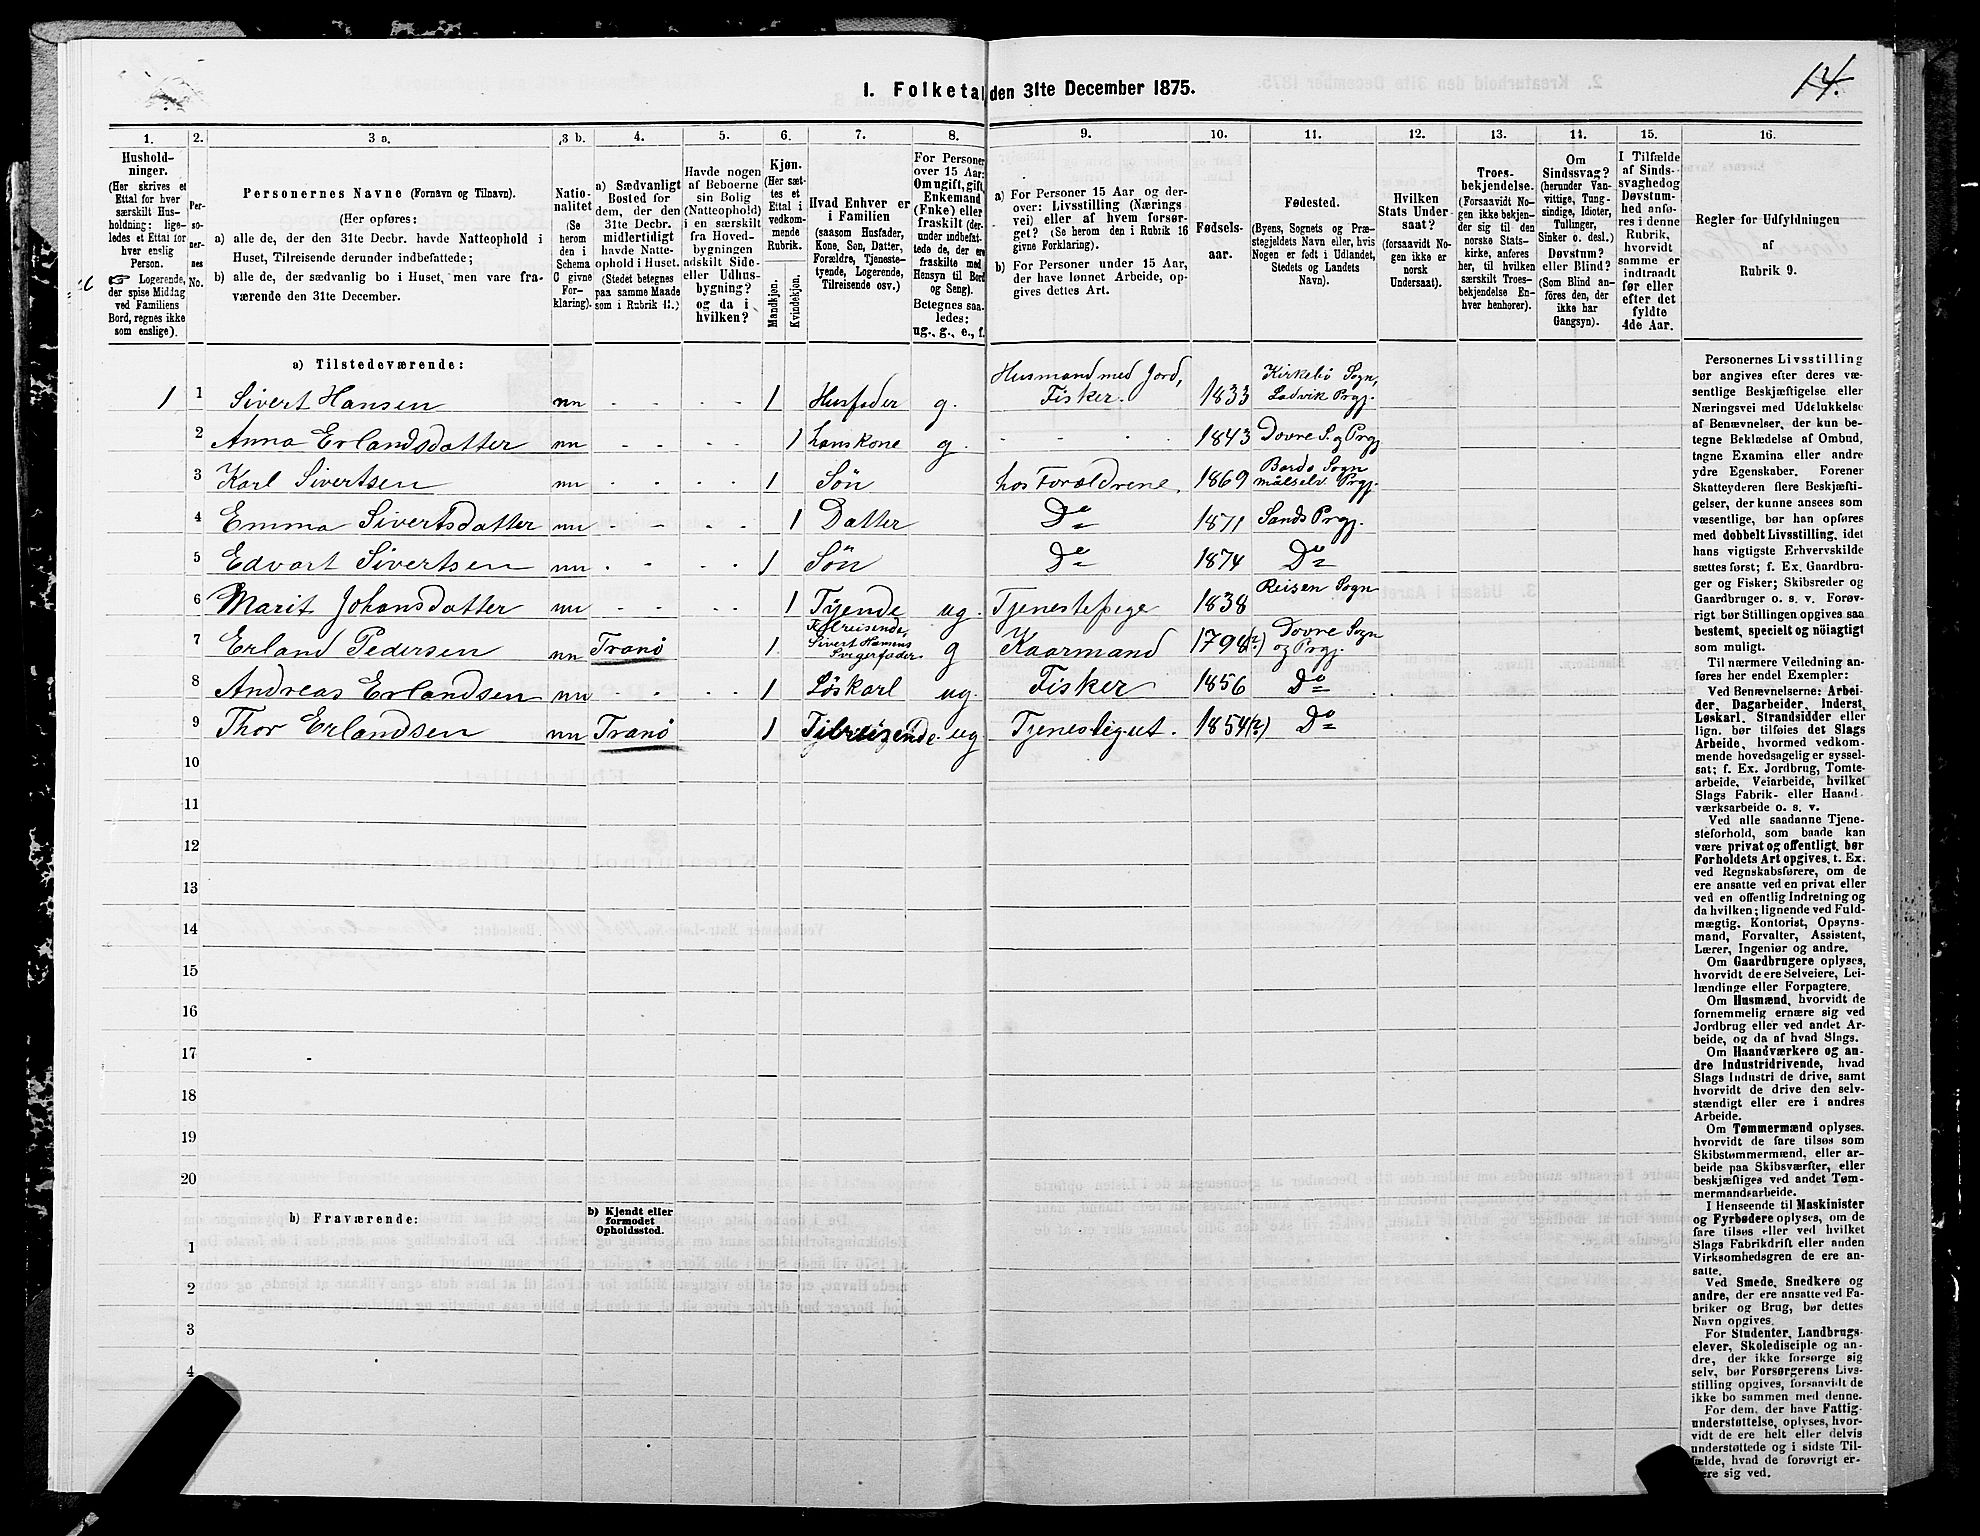 14.
1. Folketal den 31te December 1875.
1. 2. 3 a. 3 b. 4. 5. 6. 7. 8. 9. 10. 11. 12. 13. 14. 15. 16.
Hushold-
ninger.
(Her skrives et
Ettal for hver
særskilt Hus-
holdning; lige-
ledes et Ettal for
hver enslig
Person.
Logerende,
der spise Middag
ved Familiens
Bord, regnes ikke
som enslige).
Per-
so-
ner-
nes
No.
Personernes Navne (Fornavn og Tilnavn).
(Her opføres:
a) alle de, der den 31te Decbr. havde Natteophold i
Huset, Tilreisende derunder indbefattede;
b) alle de, der sædvanlig bo i Huset, men vare fra-
værende den 31te December.
Natio-
nalitet
(Se
herom
den i
Schema
G givne
For-
klaring).
a) Sædvanligt
Bosted for
dem, der den
31te Decbr.
midlertidigt
havde Natte-
ophold i Huset.
(Stedet betegnes
paa samme Maade
som i Rubrik 11.)
Havde nogen
af Beboerne
sin Bolig
(Natteophold)
i en særskilt
fra Hoved-
bygningen
adskilt Side-
eller Udhus-
bygning?
og da i
hvilken?
Kjøn.
(Her sæt-
tes et
Ettal i
vedkom-
mende
Rubrik.
Mandkjøn.
Kvindekjøn.
Hvad Enhver er
i Familien
(saasom Husfader,
Kone, Søn, Datter,
Forældre, Tjeneste-
tyende, Logerende,
Tilreisende osv.)
For Personer
over 15 Aar:
Om ugift, gift,
Enkemand
(Enke) eller
fraskilt (der-
under indbefat-
tede de, der ere
fraskilte med
Hensyn til Bord
og Seng).
Betegnes saa-
ledes:
ug., g., e., f.
a) For Personer 15 Aar og der-
over: Livsstilling (Nærings-
vei) eller af hvem forsør-
get? (Se herom den i Rubrik 16
givne Forklaring).
b) For Personer under 15 Aar,
der have lønnet Arbeide, op-
gives dettes Art.
Fødsels-
aar.
Fødested.
(Byens, Sognets og Præ-
stegjeldets Navn eller, hvis
Nogen er født i Udlandet,
Stedets og Landets
Navn).
Hvilken
Stats Under-
saat?
(forsaavidt No-
gen ikke er
norsk
Undersaat).
Troes-
bekjendelse.
(Forsaavidt No-
gen ikke bekjen-
der sig til den
norske Stats-
kirke, anføres
her, til hvilken
særskilt Troes-
bekjendelse En-
hver henhører).
Om
Sindssvag?
(herunder Van-
vittige, Tung-
sindige, Idioter,
Tullinger,
Sinker o. desl.)
Døvstum?
eller Blind?
(Som Blind an-
føres den, der
ikke har
Gangsyn).
I Tilfælde
af Sinds-
svaghed og
Døvstum-
hed anfø-
res i denne
Rubrik,
hvorvidt
samme er
indtraadt
før eller
efter det
fyldte
4de Aar.
Regler for Udfyldningen
af
Rubrik 9.
a) Tilstedeværende:
1 1 Sivert Hansen nn - - - - 1 Husfader g. Husmand med Jord, Fisker. 1833 Kirkebö Sogn, Ladvik Prgj.
2 Anna Erlandsdatter nn - - - - 1 hans kone g. - - - - 1843 Dovre S. og Prgj.
3 Karl Sivertsen nn - - - - 1 Sön hos Forældrene. 1869 Bardo Sogn Målselv Prgj.
4 Emma Sivertsdatter nn - - - - 1 Datter Do 1871 Sands Prgj.
5 Edvart Sivertsen nn - - - - 1 Sön Do 1874 Do
6 Marit Johansdatter nn - - - - 1 Tyende ug. Tjenestepige 1838 Reisen Sogn
7 Erland Pedersen nn Tranö 1 Tilreisende, Sivert Hansens Svigerfader g Kaarmand 1798(?) Dovre Sogn og Prgj.
8 Andreas Erlandsen nn - - - - 1 Löskarl ug. Fisker 1856 Do
9 Thor Erlandsen nn Tranö 1 Tilreisende ug Tjenestegut. 1854(?) Do
10
11
12
13
14
15
16
17
18
19
20
b) Fraværende:
b) Kjendt eller
formodet
Opholdssted.
1
2
3
4
Personernes Livsstilling
bør angives efter deres væ-
sentlige Beskjæftigelse eller
Næringsvei med Udelukkelse
af Benævnelser, der kun be-
tegne Beklædelse af Ombud,
tagne Examina eller andre
ydre Egenskaber. Forener
Skatteyderen flere Beskjæfti-
gelser, der kunne ansees som
væsentlige, bør han opføres
med dobbelt Livsstilling, idet
hans vigtigste Erhvervskilde
sættes først; f. Ex. Gaardbru-
ger og Fisker; Skibsreder og
Gaardbruger o. s. v. Forøv-
rigt bør Stillingen opgives saa
bestemt, specielt og nöiagtigt
som muligt.
Til nærmere Veiledning an-
føres her endel Exempler:
Ved Benævnelserne: Arbei-
der, Dagarbeider, Inderst,
Løskarl, Strandsidder eller
lign. bør tilføies det Slags
Arbeide, hvormed vedkom-
mende hovedsagelig er syssel-
sat; f. Ex. Jordbrug, Tomte-
arbeide, Veiarbeide, hvilket
Slags Fabrik- eller Haand-
værksarbeide o. s. v.
Ved alle saadanne Tjene-
steforhold, som baade kan
være privat og offentligt, bør
Forholdets Art opgives, t. Ex.
ved Regnskabsførere, om de
ere ansatte ved en privat eller
ved en offentlig Indretning og
da hvilken; lignende ved Fuld-
mægtig, Kontorist, Opsyns-
mand, Forvalter, Assistent,
Lærer, Ingeniør og andre.
Om Gaardbrugere oplyses,
hvorvidt de ere Selveiere, Lei-
lændinge eller Forpagtere.
Om Husmænd, hvorvidt de
fornemmelig ernære sig ved
Jordbrug eller ved andet Ar-
beide, og da af hvad Slags.
Om Haandværkere og an-
dre Industridrivende, hvad
Slags Industri de drive, samt
hvorvidt de drive den selv-
stændigt eller ere i andres
Arbeide.
Om Tømmermænd oplyses,
hvorvidt de fare tilsøs som
Skibstømmermænd, eller ar-
beide paa Skibsværfter, eller
beskjæftiges ved andet Tøm-
mermandsarbeide.
I Henseende til Maskinister
og Fyrbødere oplyses, om de
fare tilsøs eller ved hvilket
Slags Fabrikdrift eller anden
Virksomhedsgren de ere an-
satte.
Ved Smede, Snedkere og
andre, der ere ansatte ved Fa-
briker og Brug, bør dettes
Navn opgives.
For Studenter, Landbrugs-
elever, Skoledisciple og an-
dre, der ikke forsørge sig
selv, bør Forsørgerens Livs-
stilling opgives, forsaavidt de
ikke bo sammen med denne.
For dem, der have Fattig-
understøttelse, oplyses, hvor-
vidt de ere helt eller delvis
understøttede og i sidste Til-
fælde, hvad de forøvrigt er-
nære sig ved.